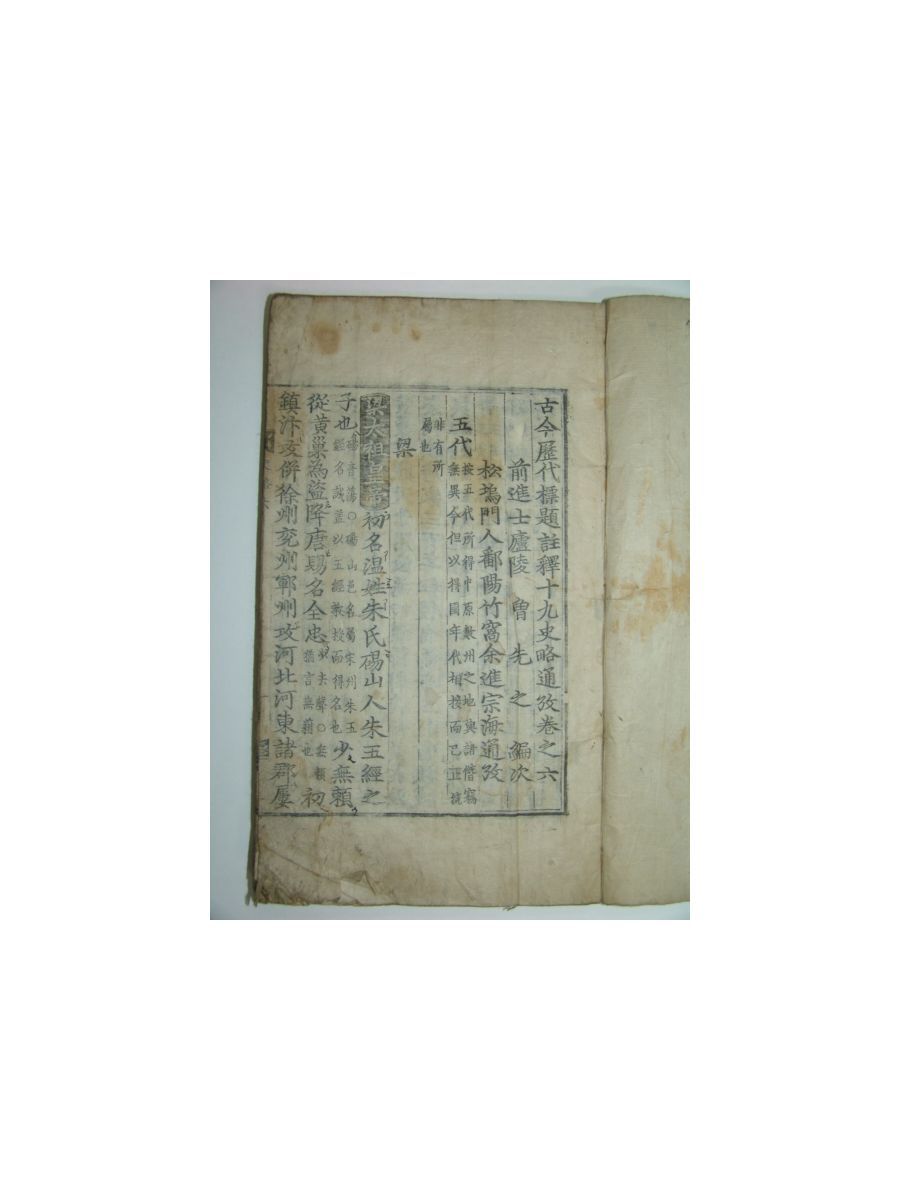 古今歷代標題註釋十九史略通攷卷之六
前進士廬陵 曾 先 之 編次
松塢門人鄱陽竹窩余進宗海通攷
五代 按五代所得中原數州之地與諸僭竊
無異今但以得國年代相接而已正統
非有所
屬也
梁
梁太祖皇帝初名温姓朱氏碭山人朱五經之
子也 碭音蕩〇碭山邑名屬宋州朱五
經名誠蓋以五經教授而得名也 少無賴
從黃巢為盜降唐賜名全忠 少去聲〇無賴
猶言無藉也 初
鎮汴攻併徐州兗州鄆州攻河北河東諸郡屢